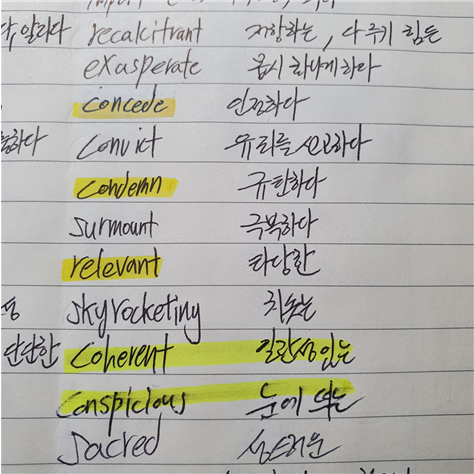 recalcitrant 저항하는, 다루기 힘든
알리다
exasperate 몹시 화나게하다
concede 인정하다
convict 유죄를 선고하다
condemn 규탄하다
surmount 극복하다
relevant 타당한
skyrocketing 치솟는
단단한 coherent 일관성있는
conspicious 눈에 띄는
sacred 성스러운